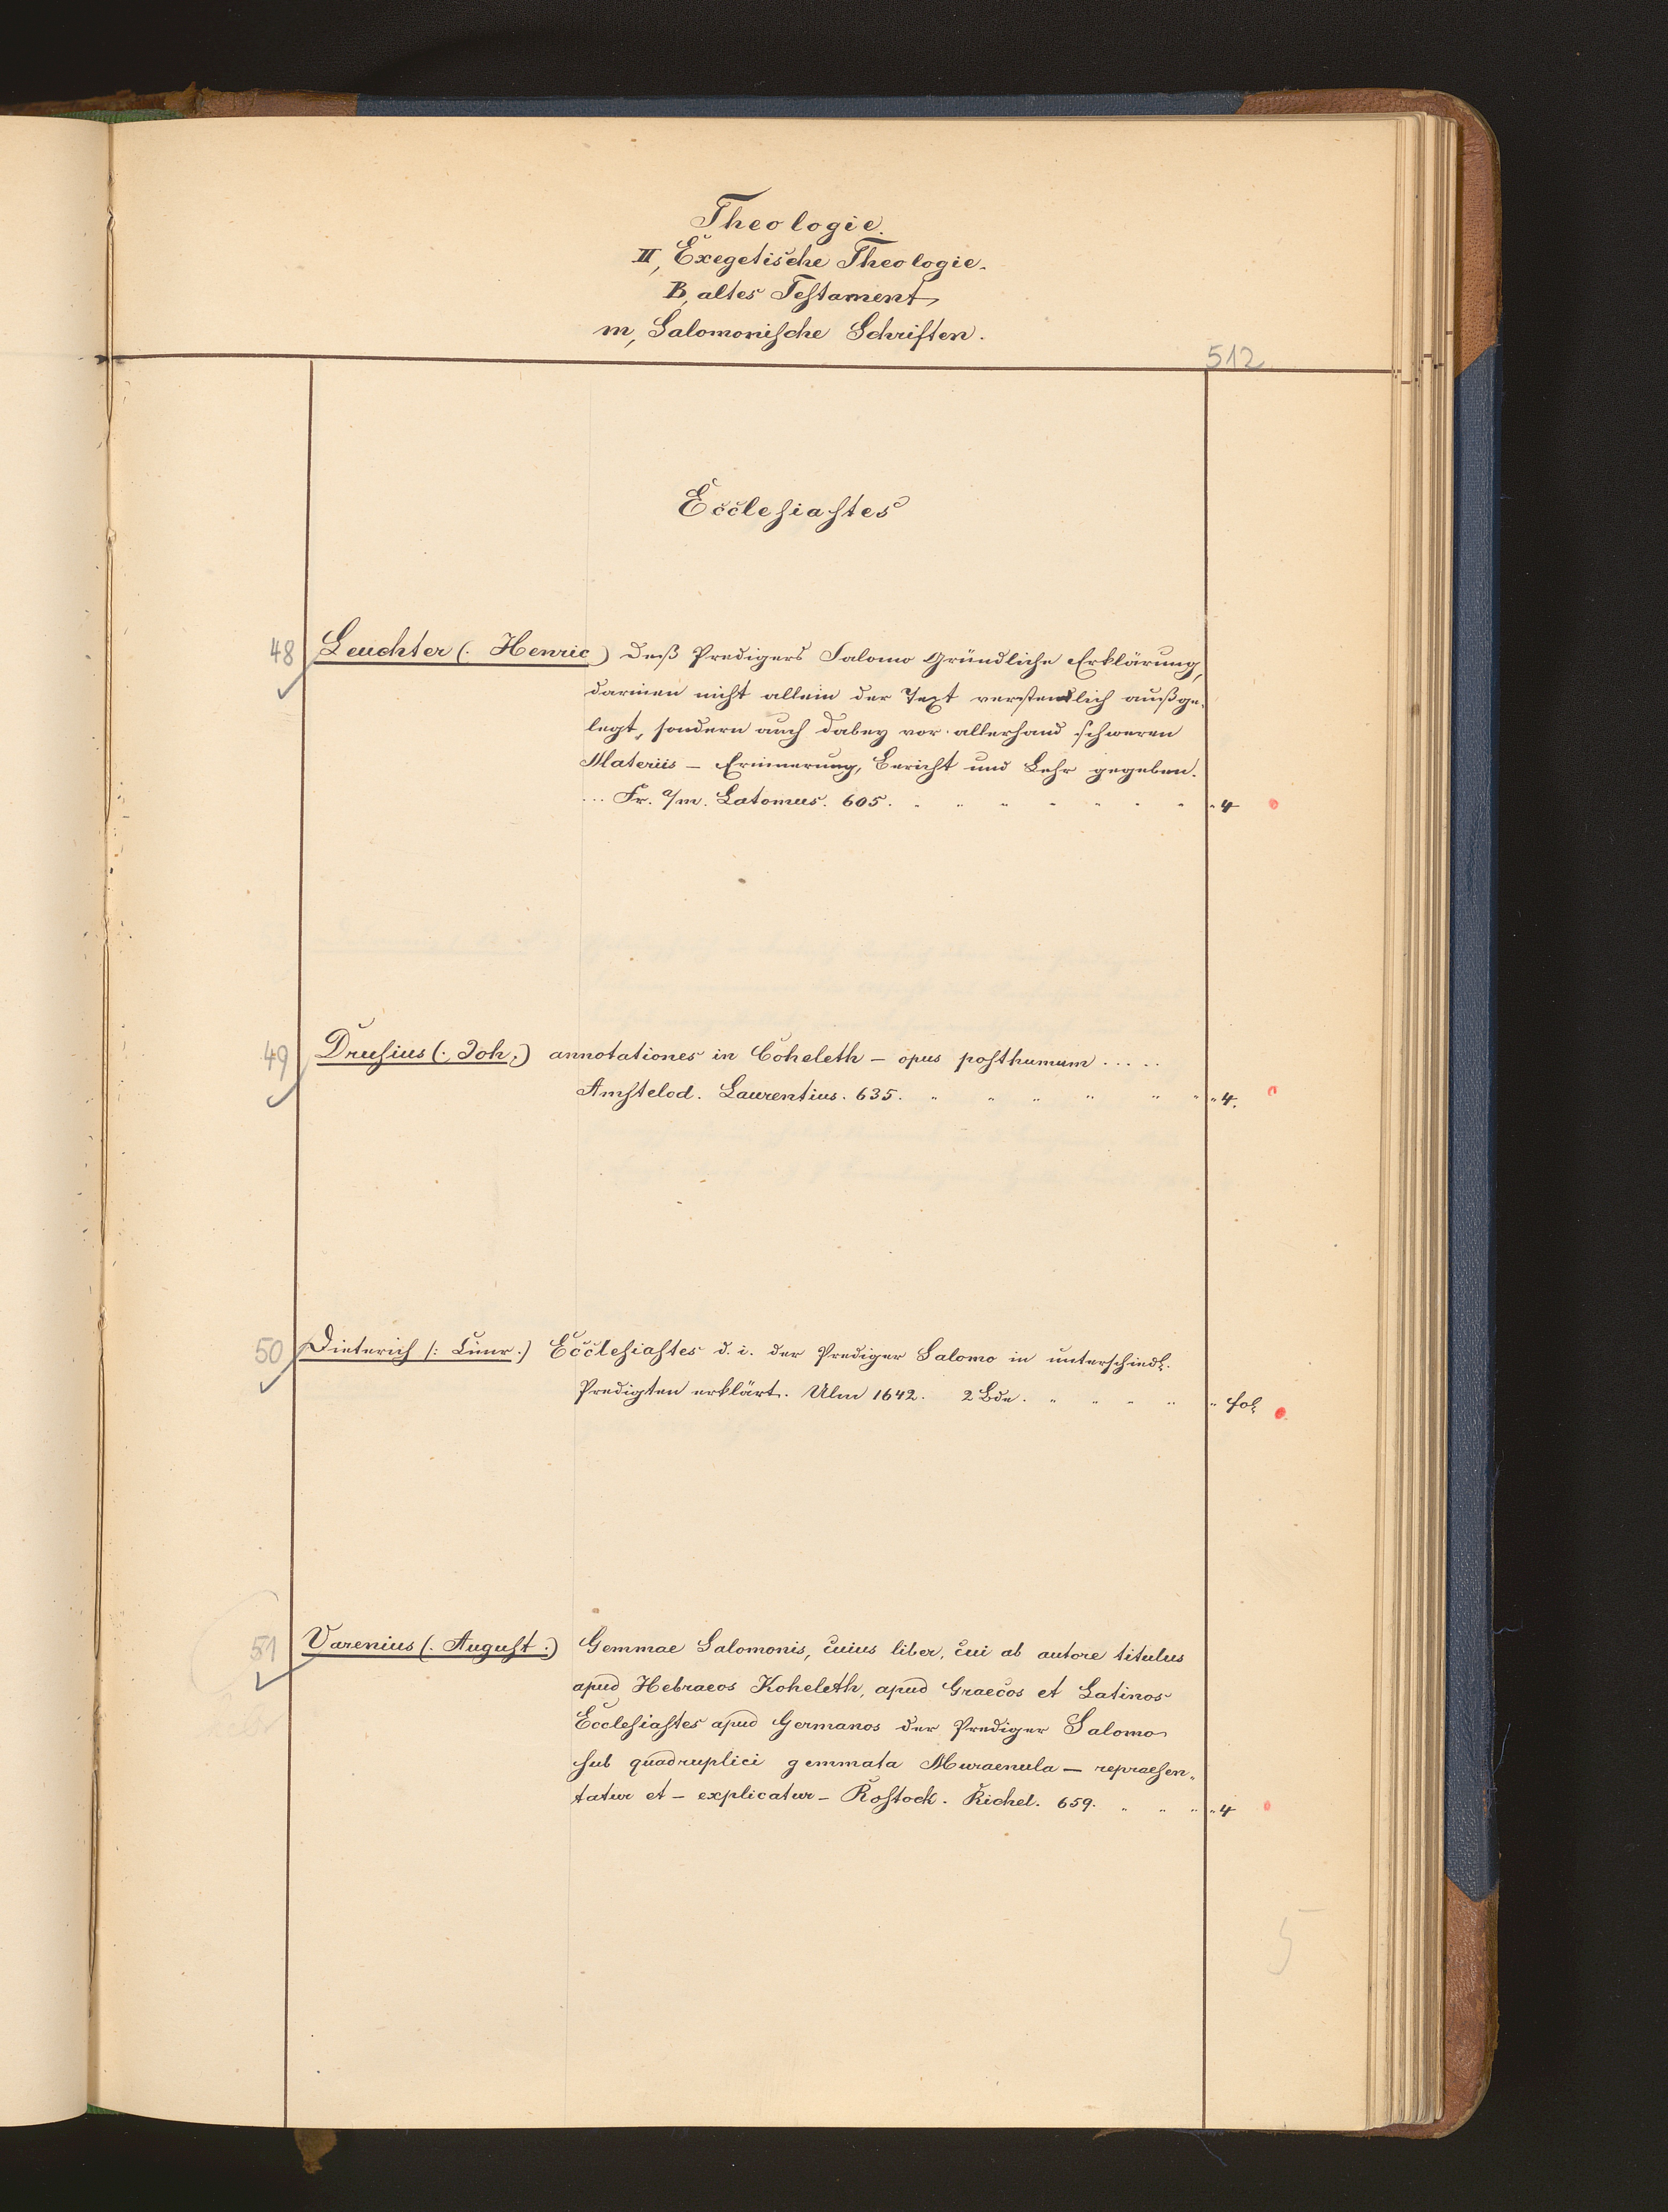 Theologie.
II, Exegetische Theologie.
B, altes Testament,
m, Salomonische Schriften.
512
Ecclesiastes
48 Leuchter (. Henric) deß Predigers Salomo Gründliche Erklärung,
darinen nicht allein der Text verstendlich außge-
legt, sondern auch dabey vor allerhand schweren
Materiis – Erinnerung, Bericht und Lehr gegeben.
... Fr. a/m. Latomus. 605. 4
49 Drusius (. Joh.) annotationes in Coheleth – opus posthumum .....
Amstelod. Laurentius. 635. 4.
50 Dieterich (: Cunr.) Ecclesiastes d. i. der Prediger Salomo in unterschiedl.
Predigten erklärt. Ulm 1642. 2 Bde. fol.
51 Varenius (. August.) Gemmae Salomonis, cuius liber, cui ab autore titulus
apud Hebraeos Koheleth, apud Graecos et Latinos
Ecclesiastes apud Germanos der Prediger Salomo
sub quadruplici gemmata Muraenula – repraesen-
tatur et – explicatur – Rostock. Richel. 659. 4
5